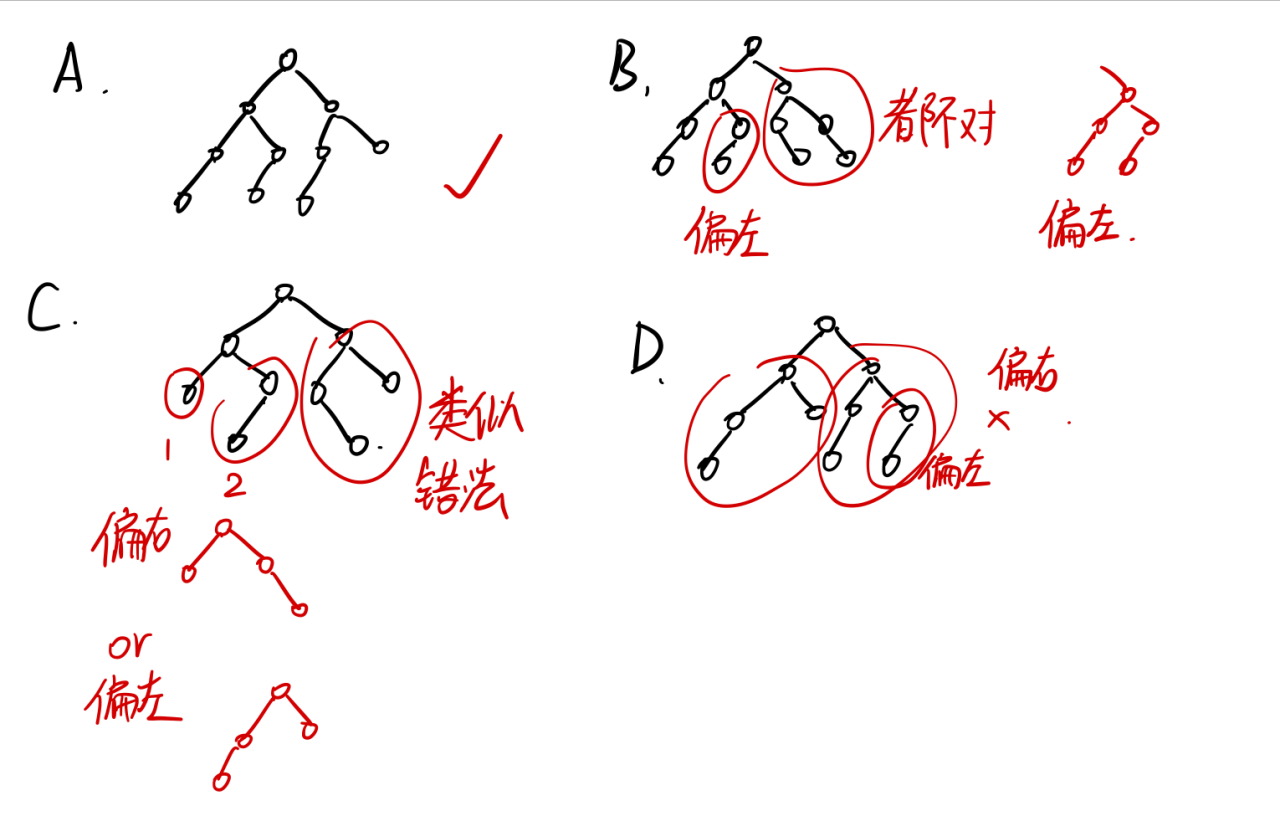 A.
✓
B.
都不对
偏左
偏左.
C.
1
2
类似
错法
偏右
or
偏左
D.
偏右
×
偏左